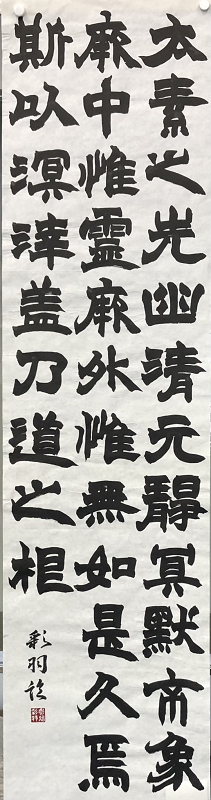 太素之先幽清元靜冥默亡象
厥中惟靈厥外惟無如是久焉
斯以溟涬盖乃道之根
彩羽